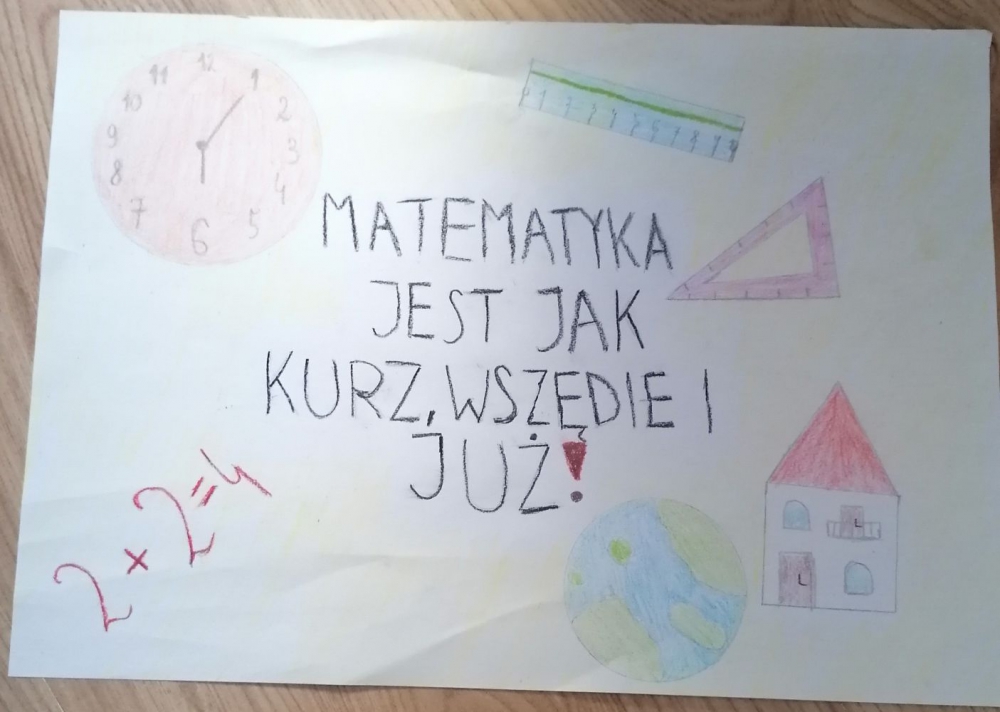 12
11 1
10 2
9 3
8 4
7 5
6
MATEMATYKA
JEST JAK
KURZ, WSZĘDIE I
JUŻ!
2 × 2 = 4